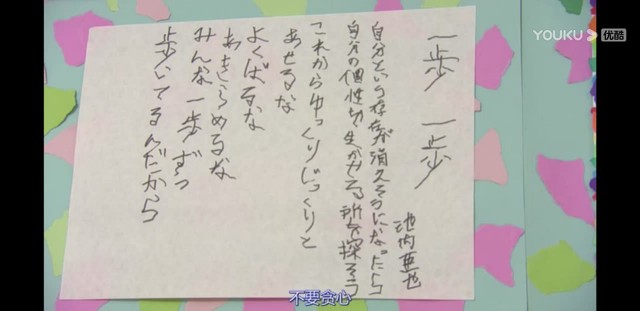 一歩 一歩
池内亜也
自分という存在が消えそうになったら
自分の個性が生かせる所を探そう
これからゆっくりじっくりと
あせるな
よくばるな
あきらめるな
みんな一歩ずつ
歩いてるんだから
YOUKU 优酷
不要贪心